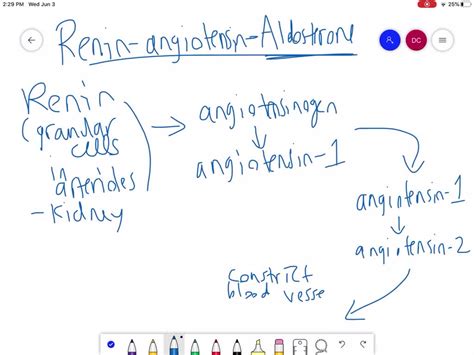 2:29 PM Wed Jun 3
25%
DC
Renin-angiotensin-Aldosterone
Renin
(granular
cells
in
arterioles
-Kidney
angiotensinogen
angiotensin-1
angiotensin-1
angiotensin-2
constrict
blood vesse